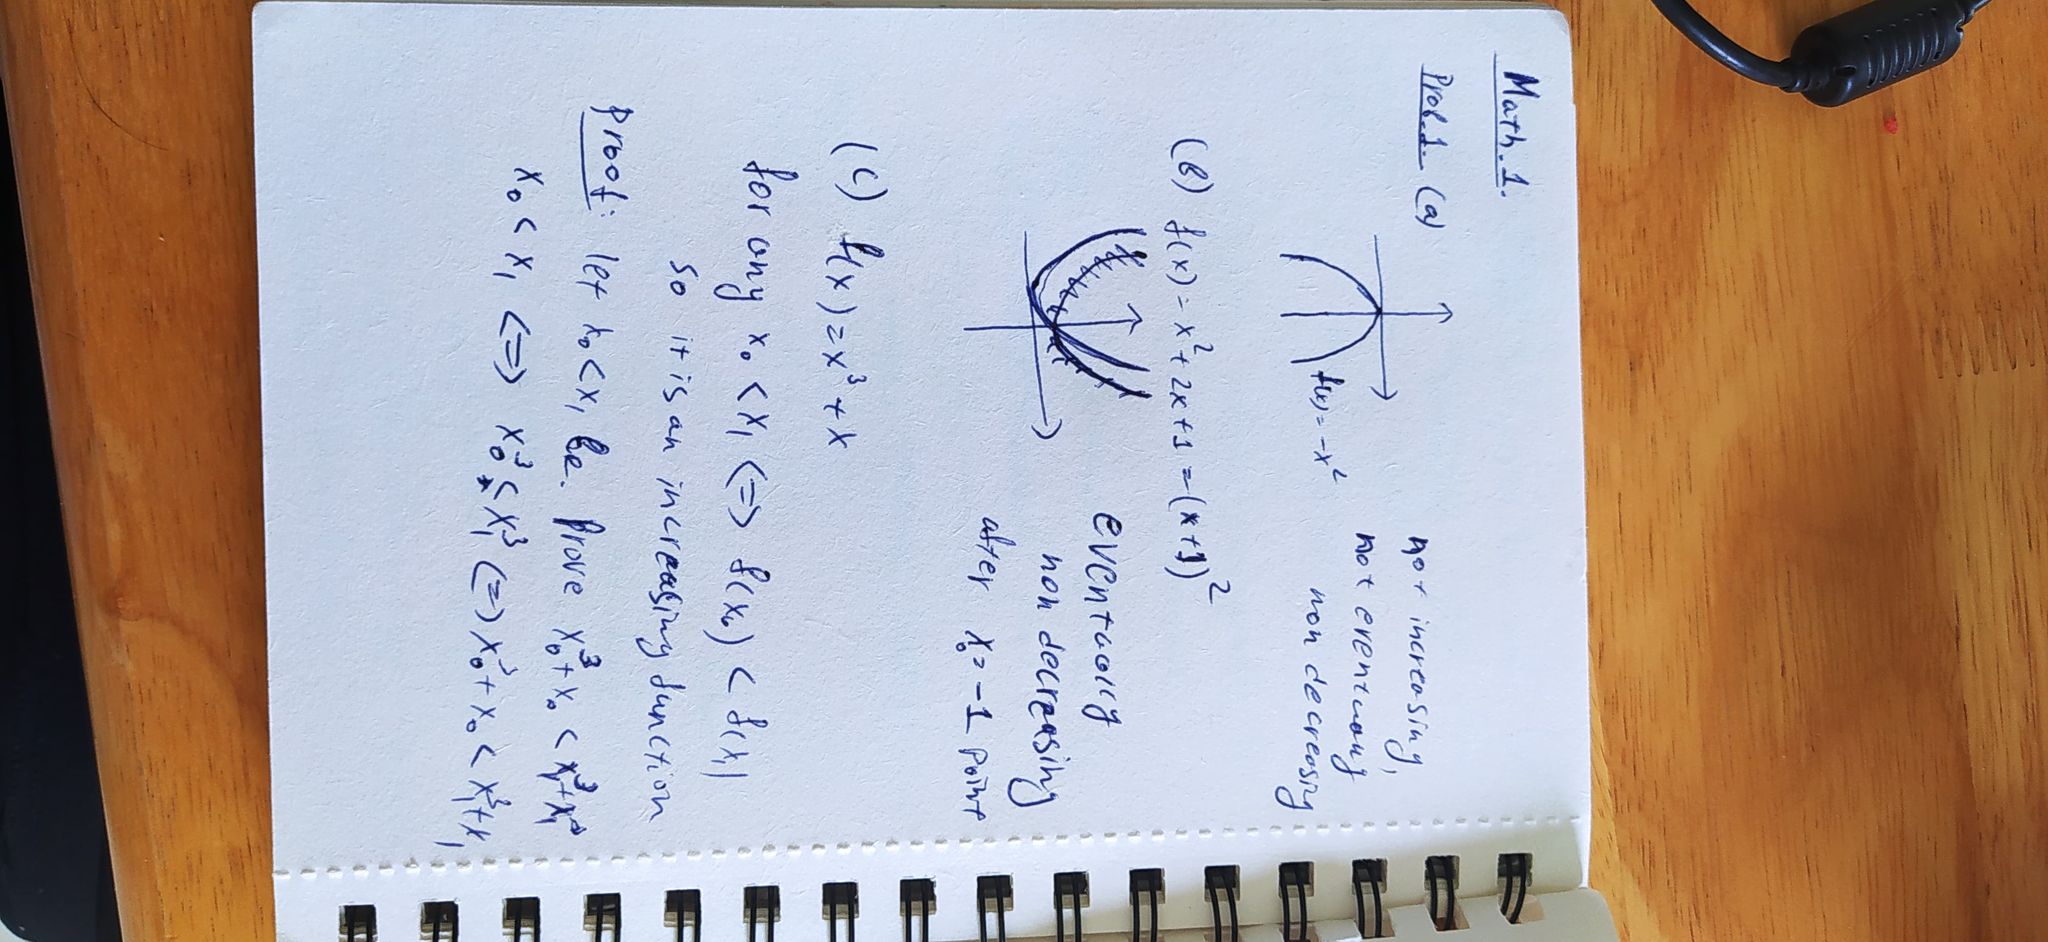 Math. 1.
Prob. 1. (a)
not increasing,
not eventually
non decreasing
f(x) = -x²
(b) f(x) = x² + 2x + 1 = (x+1)²
eventually
non decreasing
after x₀ = -1 point
(c) f(x) = x³ + x
for any x₀ < x₁ <=> f(x₀) < f(x₁)
so it is an increasing function
Proof: let x₀ < x₁ be. Prove x₀³ + x₀ < x₁³ + x₁
x₀ < x₁ <=> x₀³ < x₁³ <=> x₀³ + x₀ < x₁³ + x₁